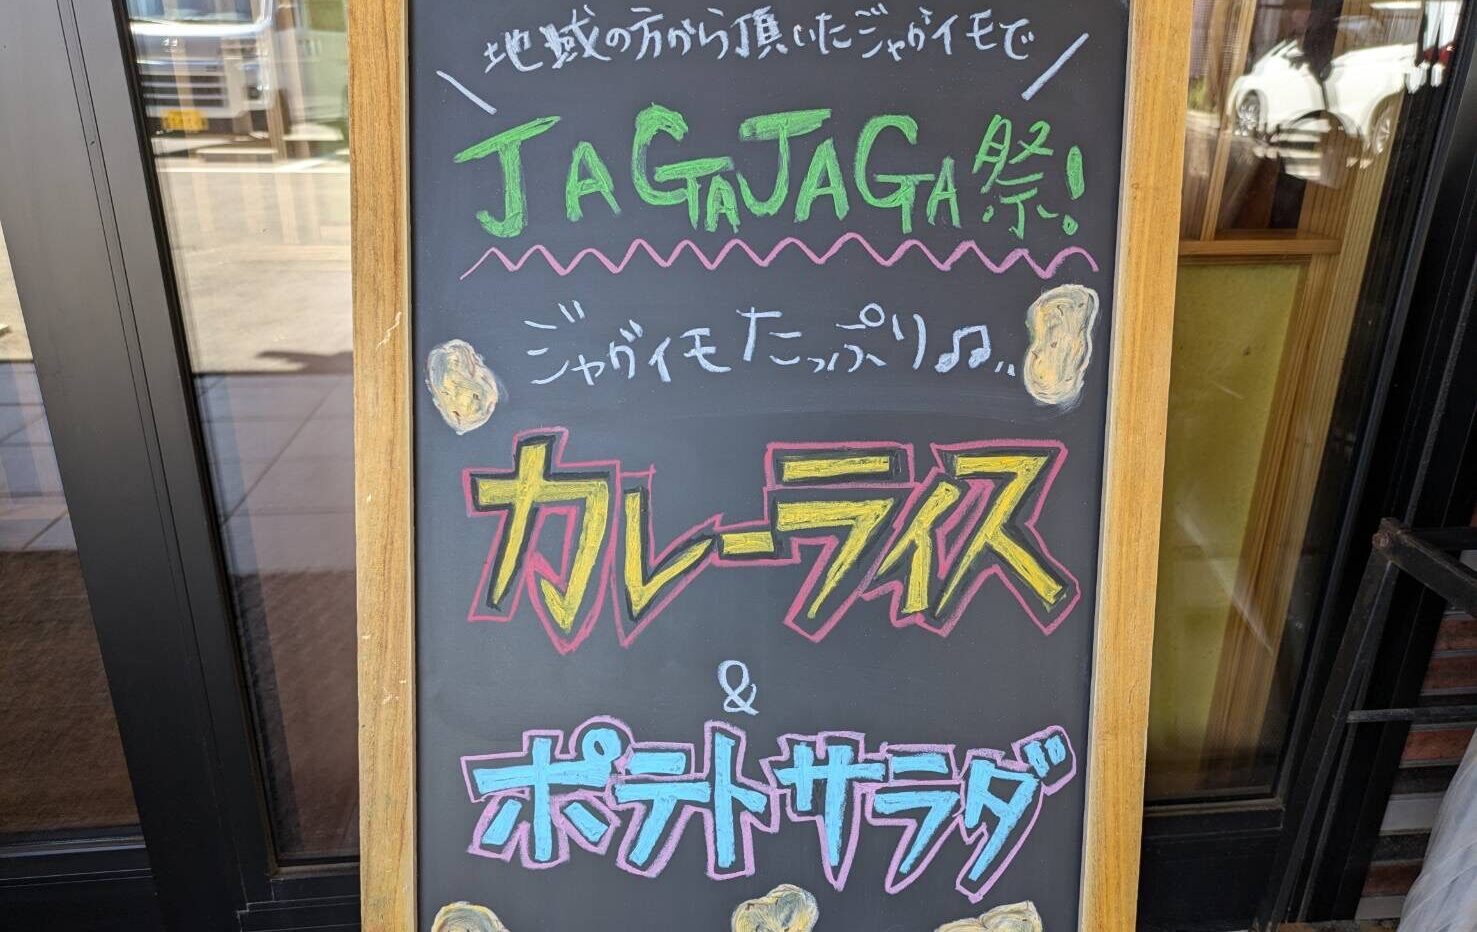 地域の方から頂いたジャガイモで
JAGAJAGA祭!
ジャガイモたっぷり♫..
カレーライス
&
ポテトサラダ